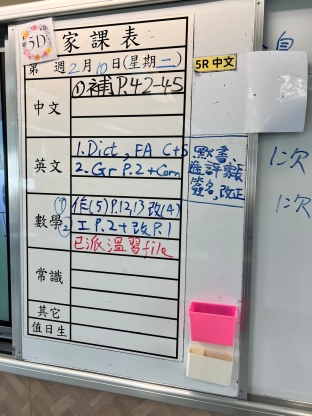 5D
家課表
第 週2月10日(星期一)
5R中文
中文
①補P.42-45
英文
1.Dict, FA C+S
2. Gr P.2+Corn
默書、
進評家長
簽名,改正
數學
① 作(5)P.12,13改(4)
② 工P.2+改P.1
已派溫習file
常識
其它
值日生
次
次